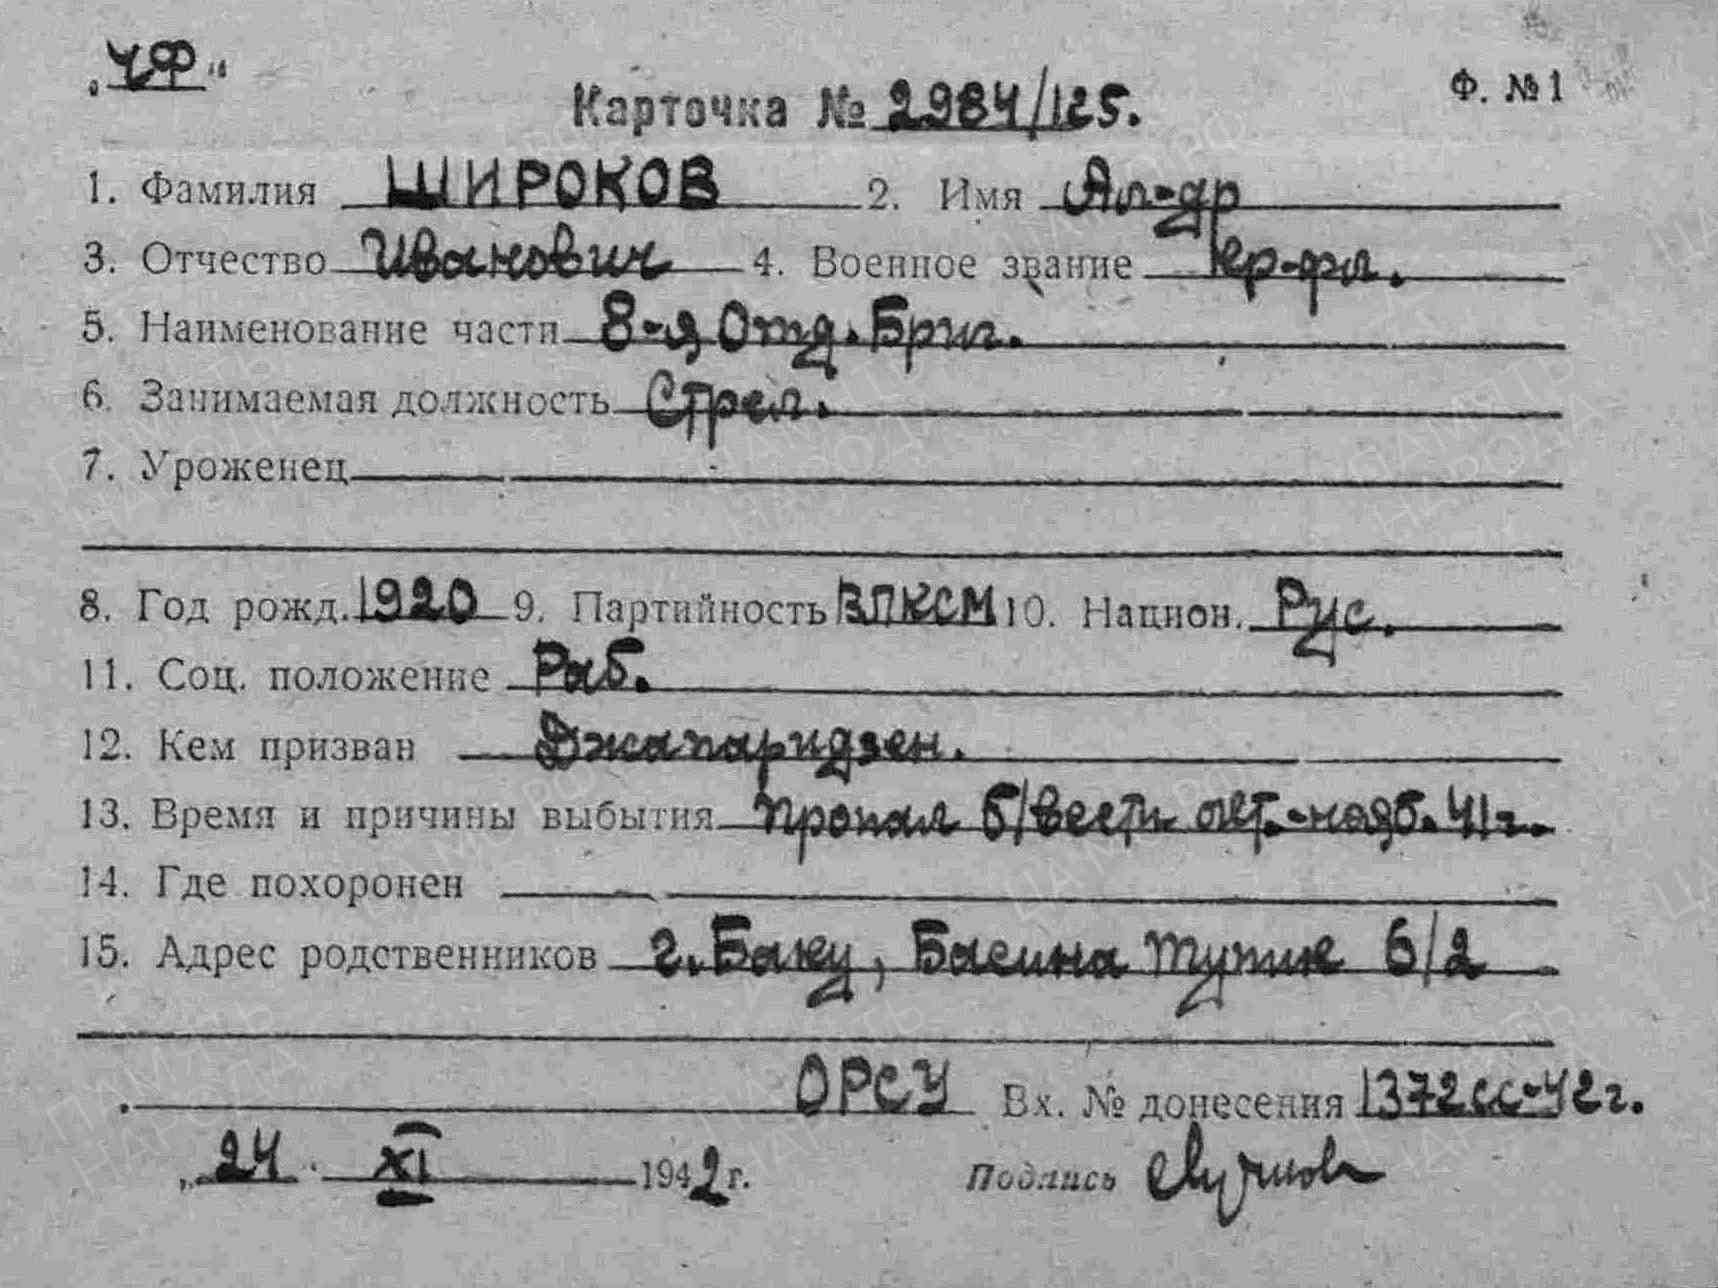 „ЧФ"
Ф. №1
Карточка № 2984/125.
1. Фамилия ШИРОКОВ 2. Имя Ал-др
3. Отчество Иванович 4. Военное звание кр-фл.
5. Наименование части 8-я Отд. Бриг.
6. Занимаемая должность Стрел.
7. Уроженец
8. Год рожд. 1920 9. Партийность ВЛКСМ 10. Национ. Рус.
11. Соц. положение Раб.
12. Кем призван Джапаридзен.
13. Время и причины выбытия Пропал б/вести окт.-нояб. 41г.
14. Где похоронен
15. Адрес родственников г. Баку, Басина тупик 6/2
ОРСУ Вх. № донесения 1372сс-42г.
„24 XI 1942г. Подпись